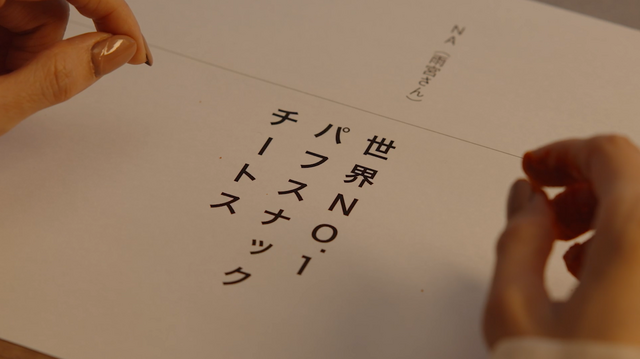 NA（雨宮さん）
世界NO.1
パフスナック
チートス